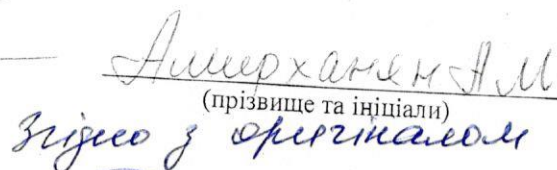 Амирханян А М
(прізвище та ініціали)
Згідно з оригіналом